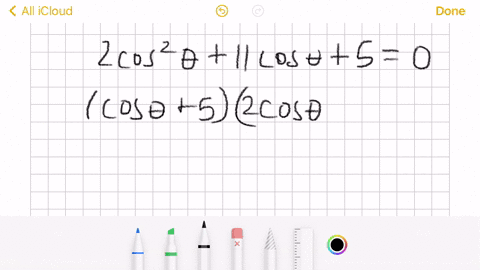 All iCloud
Done
2cos²θ + 11cosθ + 5 = 0
(cosθ + 5)(2cosθ